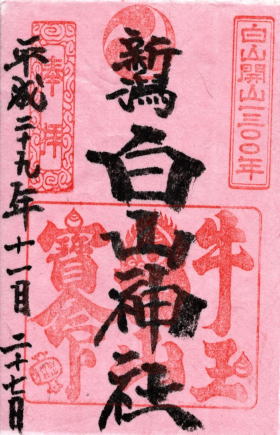 白山開山一三〇〇年
新潟白山神社
奉拝
平成二十九年十一月二十七日
牛王
寶命